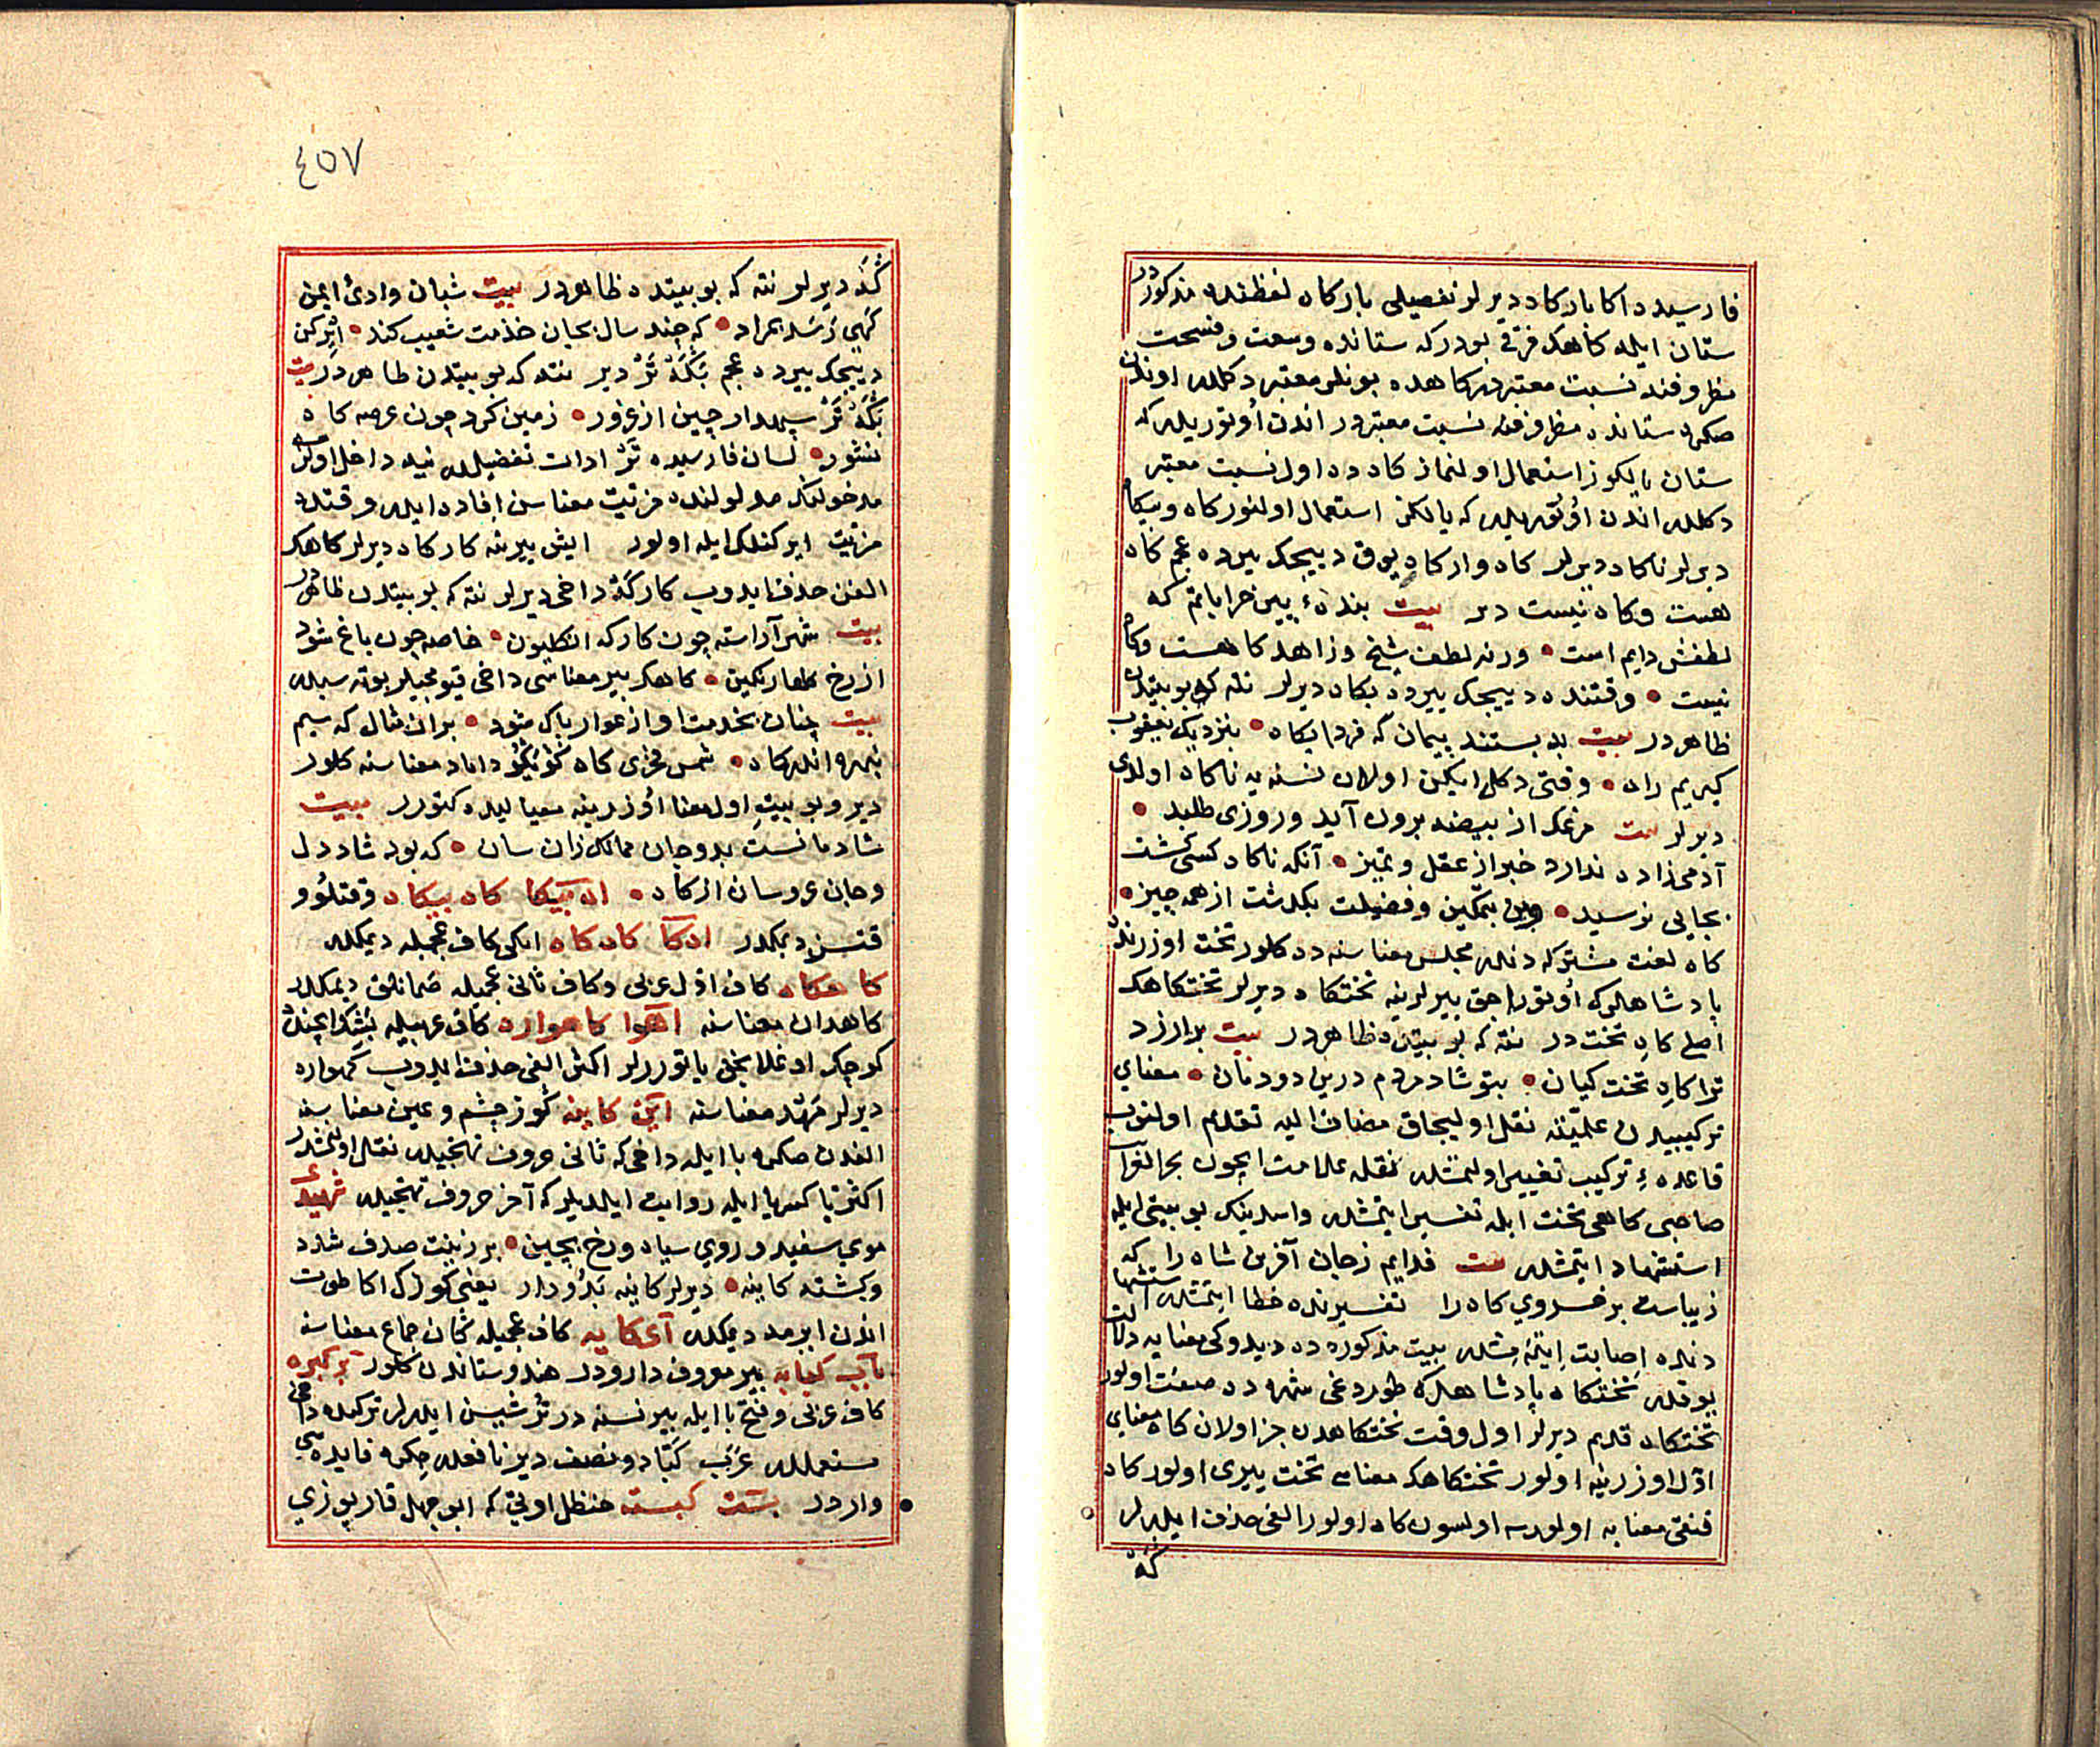 فارسیده اکا بارکاه دیرلر تفصیلی بارکاه لفظنده مذکوردر
ستان ایله کاهک فرقی بودرکه ستانده وسعت وفسحت
مظروفنه نسبت معتبردر کاهده بونلر معتبر دکلدر اوندن
صکره ستانده مظروفنه نسبت معتبردر اندن اوتوریدرکه
ستان یالکوز استعمال اولنماز کاهده اول نسبت معتبر
دکلدر اندن اوتوریدر که یالکز استعمال اولنور کاه وبیکاه
دیرلر ناکاه دیرلر کاه وار کاه یوق دییجک یرده عجم کاه
هست وکاه نیست دیر بیت بندهٔ پیر خراباتم که
لطفش دایم است • ورنه لطف شیخ وزاهد کاه هست وکاه
نیست • وقتنده دییجک یرده بکاه دیرلر نته که بو بیتدن
ظاهردر بیت بدبستند پیمان که فردا بکاه • بنزدیک یعقوب
کیریم راه • وقتی دکل ایکن اولان نسنه یه ناکاه اولدی
دیرلر بیت مرغک از بیضه برون آید وروزی طلبد •
آدمی زاده ندارد خبر از عقل وتمیز • آنکه ناکاه کسی کشت
بجایی نرسید • وین بتمکین وفضیلت بکذشت از همه چیز •
کاه لغت مشترکه دندر مجلس معناسنه ده کلور تخت اوزرنده
پادشاهلرک اوتوراجق یرلرینه تختکاه دیرلر تختکاهک
اصلی کاه تخت در نته که بو بیتدن ظاهردر بیت برازد
ترا کاه تخت کیان • بتو شاد مردم درین دودمان • معنای
ترکیبیدن علمیته نقل اولیجاق مضاف الیه تقدم اولنوب
قاعدهٔ ترکیب تغییر اولنمشدر نقله علامت ایچون بحر الغرائب
صاحبی کاهی تخت ایله تفسیر ایتمشدر واسدینک بو بیتی ایله
استشهاد ایتمشدر بیت فدایم زجان آفرین شاه را که
زیباست بر خسروی کاه را تفسیرنده خطا ایتمشدر استشها
دنده اصابت ایتمه مشدر بیت مذکورده دیدوکی معنایه دلالت
یوقدر تختکاه پادشاهلرک طوردغی شهرده صفت اولور
تختکاه قدیم دیرلر اول وقت تختکاهدن جز اولان کاه معنای
اول اوزرینه اولور تختکاهک معناسی تخت ییری اولور کاه
قنغی معنایه اولورسه اولسون کاه اولور الفی حذف ایدرلر
که
٤٥٧
که دیرلر نته که بو بیتده ظاهردر بیت شبان وادئ ایمن
کهی رسد بمراد • که چند سال بجان خدمت شعیب کند • ایرکن
دییجک ییرده عجم بکه تر دیر نته که بو بیتدن ظاهردر بیت
بکه تر سپهدار چین از غرور • زمین کرد چون عرصه کاه
نشور • لسان فارسیده تر ادات تفضیلدر نیه داخل اولرسه
مدخولنک مدلولنده مزیت معناسن افاده ایدر وقتده
مزیت ایرکنلک ایله اولور ایش ییرینه کارکاه دیرلر کاهک
الفن حذف ایدوب کارکه داخی دیرلر نته که بو بیتدن ظاهردر
بیت شهر آراسته چون کارکه انکلیون • خاصه چون باغ شود
از رخ کلها رنکین • کاهک بیر معناسی داخی قیومجیلر بوته سیدر
بیت چنان بخدمت او از عوار پاک شود • بران مثال که سیم
نبهره اندر کاه • شمس فخری کاه داماد معناسنه کلور
دیر وبو بیت اول معنا اوزرینه معیالیده کتورر بیت
شادمانست بدو جان ممالک زان سان • که بود شاد دل
وجان عروسان از کاه • اه بیکا کاه بیکاه وقتلو و
وقتسز دیمکدر اه کا کاه کاه ایکی کاف عجمیله دیمکدر
کاهکاه کاف اول عربی وکاف ثانی عجمیله صمانلق دیمکدر
کاهدان معناسنه اهوا کاهواره کاف عربیله بشک ایچنده
کوچک اوغلانجق یاتورلر اکثر الفی حذف ایدوب کهواره
دیرلر مهد معناسنه این کاینه کوز چشم وعین معناسنه
الفدن صکره با ایله داخی که ثانی حروف تهجیدر نقل اولنمشدر
اکثر یا کسریا ایله روایت ایلدیلر که آخر حروف تهجیدر شهیدی
موی سفید وروی سیاه ورخ بچین • برزینت صدف شده
وکشته کاینه • دیرلر کاینه بدو دار یعنی کوزک اکا طوت
اندن ایرمه دیمکدر آی کایه کاف عجمیله کان جماع معناسنه
باب کبابه بیر معروف دارودر هندوستاندن کلور برکبره
کاف عربی وفتح با ایله بیر نسنه در ترشیسن ایدرلر ترکیده داخی
مستعملدر عرب کبّاد ونصف دیر نافعدر چکره فایده سی
واردر بست کبسته حنظل اوتی که ابو جهل قارپوزی